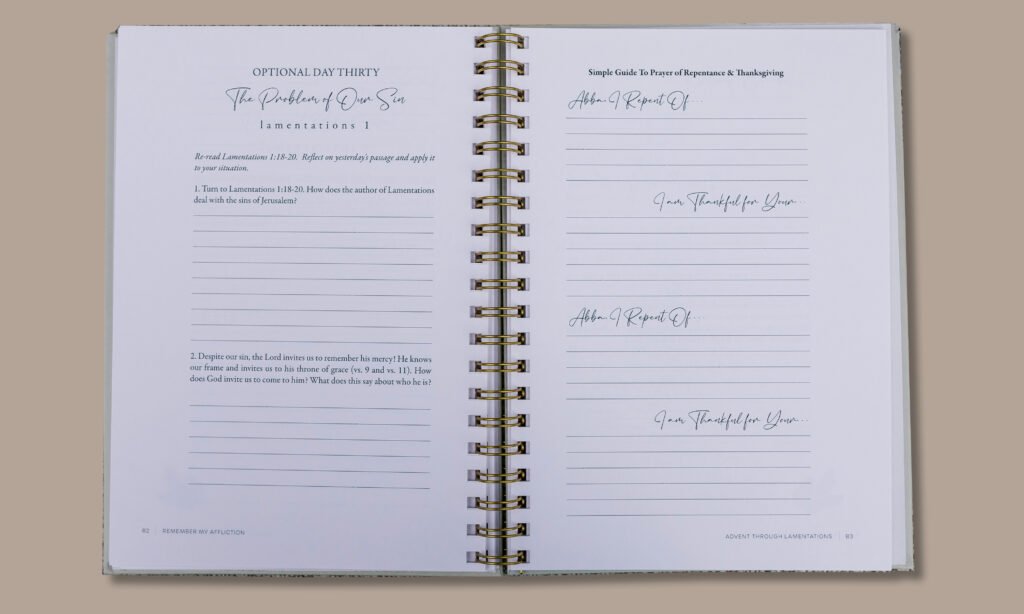 OPTIONAL DAY THIRTY
The Problem of Our Sin
lamentations 1
Re-read Lamentations 1:18-20. Reflect on yesterday's passage and apply it
to your situation.
1. Turn to Lamentations 1:18-20. How does the author of Lamentations
deal with the sins of Jerusalem?
2. Despite our sin, the Lord invites us to remember his mercy! He knows
our frame and invites us to his throne of grace (vs. 9 and vs. 11). How
does God invite us to come to him? What does this say about who he is?
82 | REMEMBER MY AFFLICTION
Simple Guide To Prayer of Repentance & Thanksgiving
Abba, I Repent Of...
I am Thankful for Your...
Abba, I Repent Of...
I am Thankful for Your...
ADVENT THROUGH LAMENTATIONS | 83